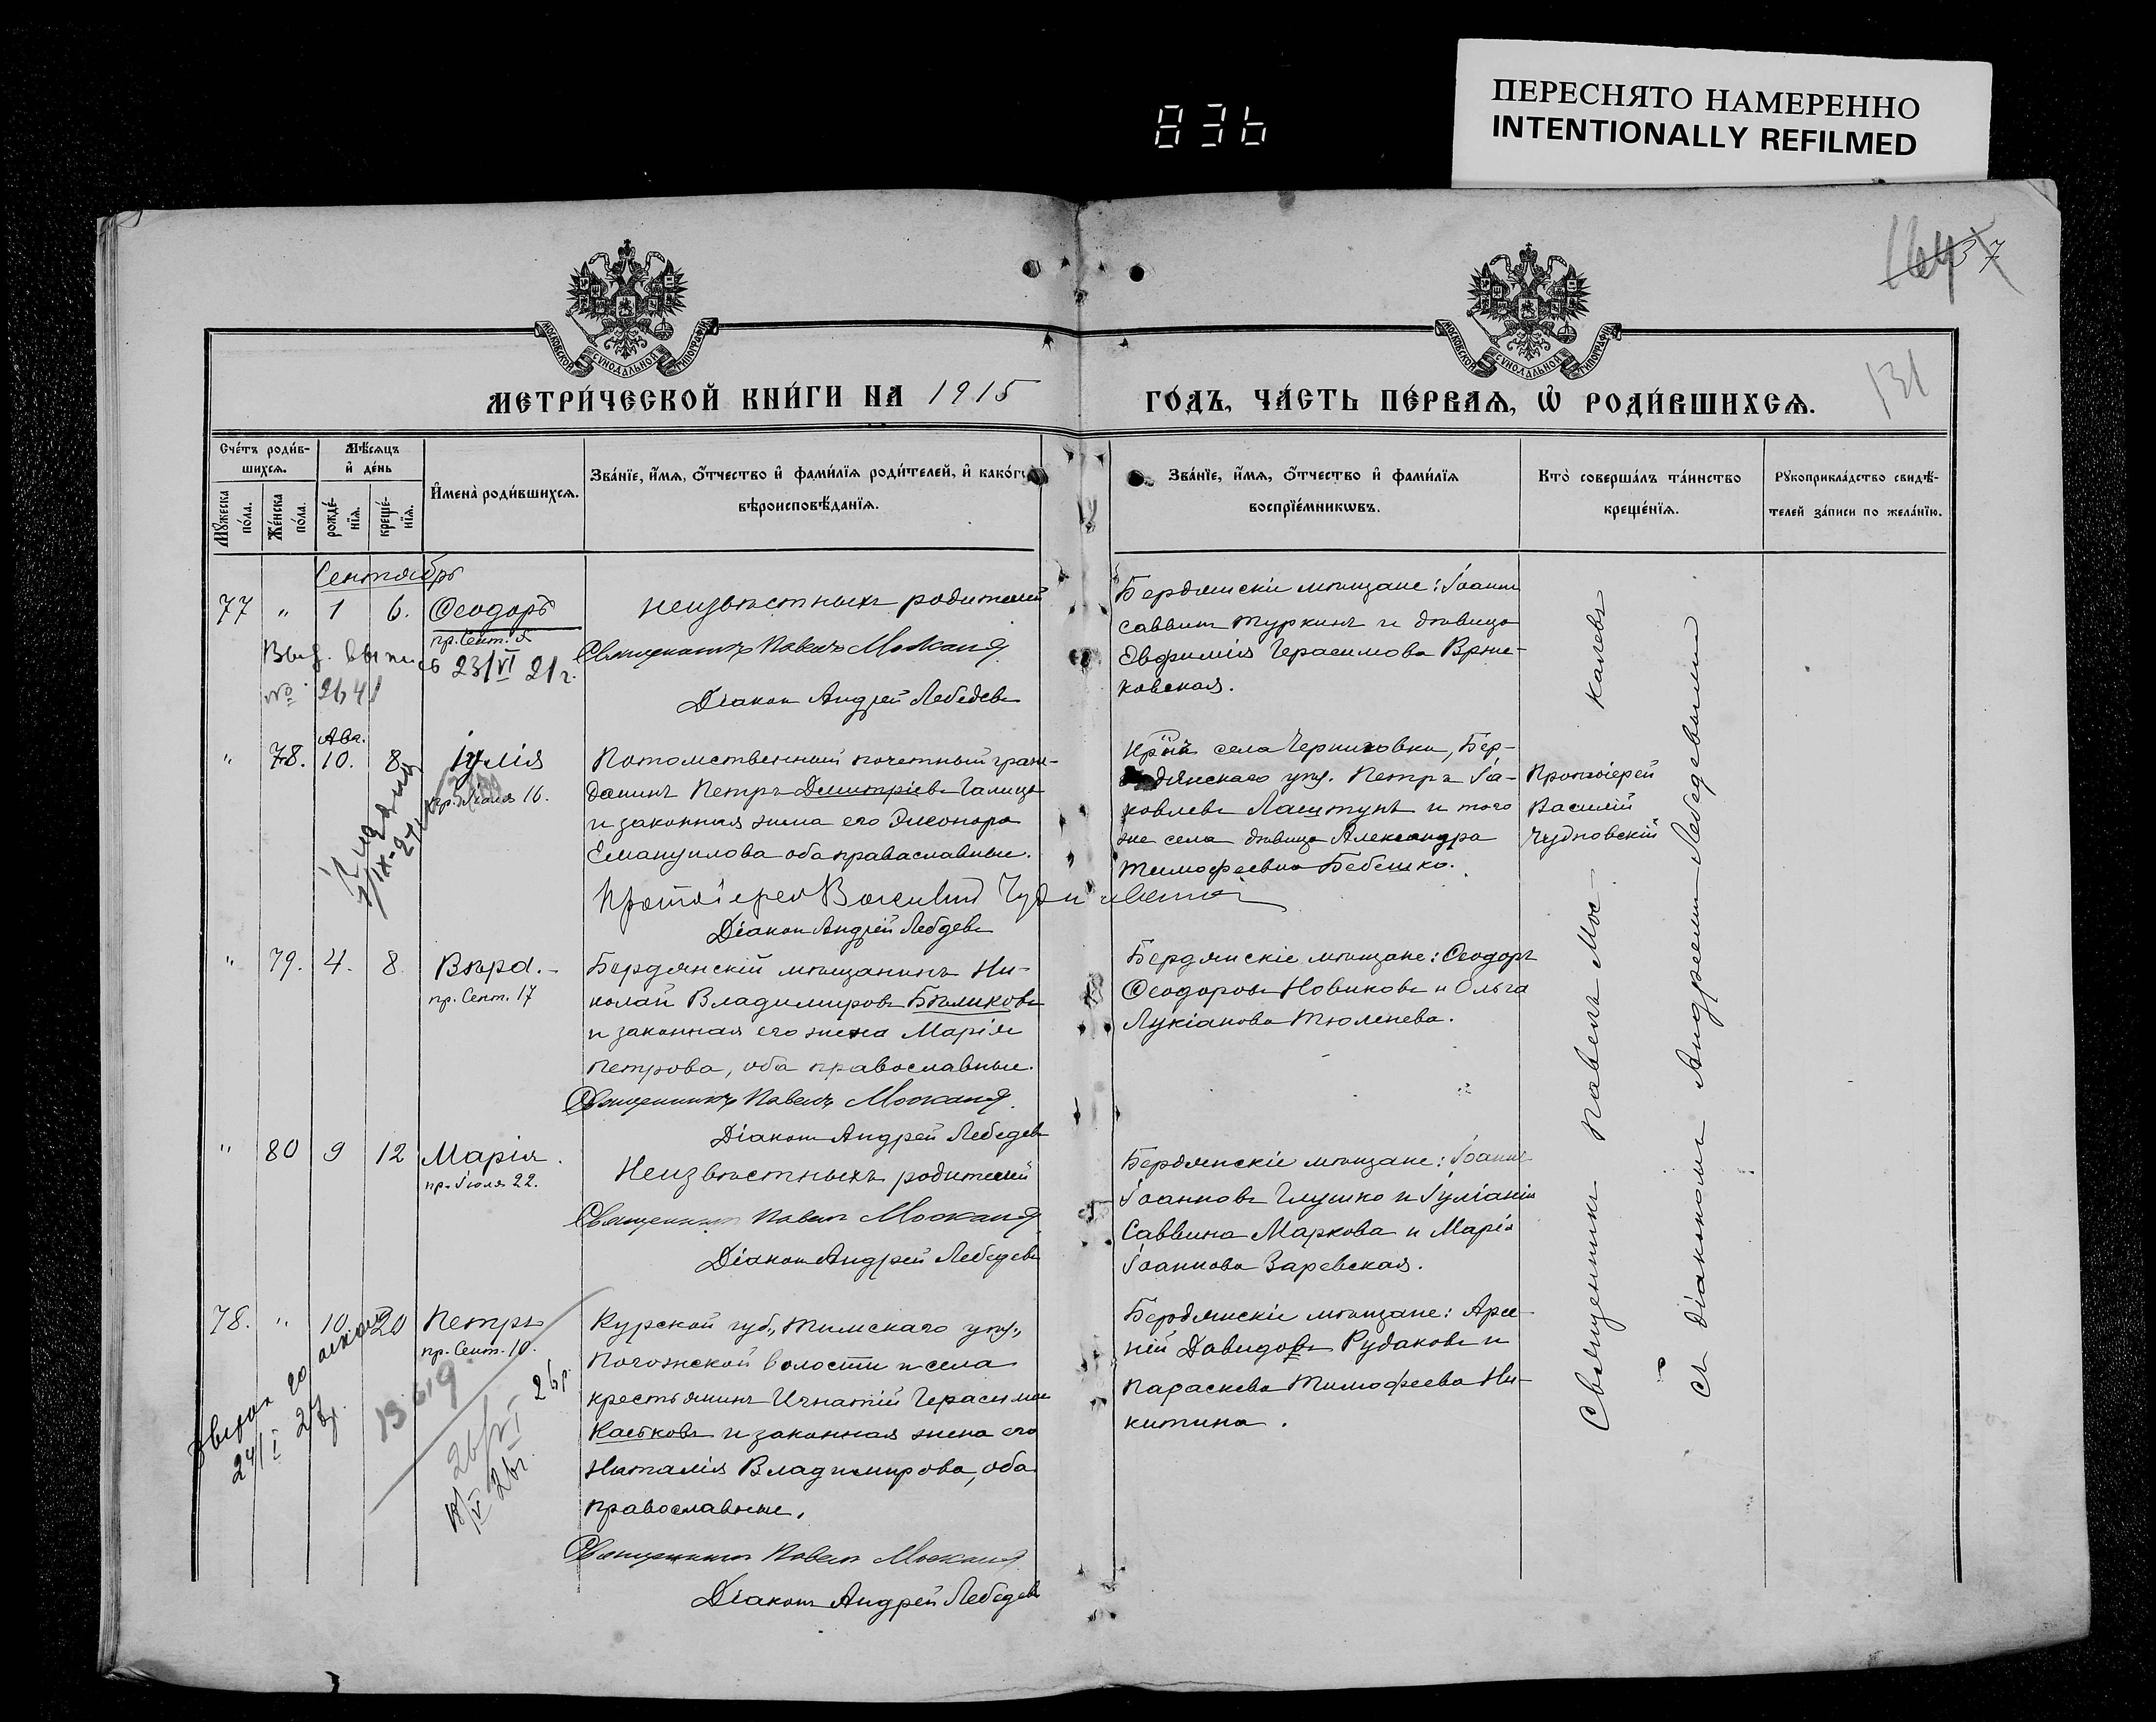 836
ПЕРЕСНЯТО НАМЕРЕННО
INTENTIONALLY REFILMED
164
37
131
МОСКОВСКОЙ СѴНОДАЛЬНОЙ ТИПОГРАФІИ
МОСКОВСКОЙ СѴНОДАЛЬНОЙ ТИПОГРАФІИ
МЕТРИ́ЧЕСКОЙ КНИ́ГИ НА 1915
ГО́ДЪ, ЧА́СТЬ ПЕ́РВАѦ, Ѡ РОДИ́ВШИХСѦ.
Сче́тъ роди́в-
шихсѧ.
Мꙋ́жеска по́ла.
Же́нска по́ла.
Мѣ́сѧцъ
и де́нь
рожде́-
нїѧ.
креще́-
нїѧ.
И҆мена̀ роди́вшихсѧ.
Зва́нїе, и҆́мѧ, ѻ҆́тчество и҆ фами́лїѧ роди́телей, и҆ како́гѡ
вѣроисповѣ́данїѧ.
Зва́нїе, и҆́мѧ, ѻ҆́тчество и҆ фами́лїѧ
воспрїе́мникѡвъ.
Кто̀ соверша́лъ та́инство
креще́нїѧ.
Рꙋкоприкла́дство свидѣ́-
телей за́писи по жела́нїю.
Сентябрь
77 " 1 6. Ѳеодоръ
пр. Сент.
23/VI 21 г.
№ 2641
неизвѣстныхъ родителей
Священникъ Павелъ Москалевъ
Діаконъ Андрей Лебедевъ
Бердянскіе мѣщане: Іоаннъ
Саввинъ Туркинъ и дѣвица
Евфимія Герасимова
ковская.
" 78. Авг. 10. 8 Іулія
пр. Іюля 16.
Потомственный почетный граж-
данинъ Петръ Димитріевъ Галицъ
и законная жена его Элеонора
Емануилова оба православные.
Протоіерей Василій Чудновскій
Діаконъ Андрей Лебедевъ
села Черниговки, Бер-
дянскаго уѣз. Петръ Іа-
ковлевъ Лаштунъ и того
же села дѣвица Александра
Тимофеевна Бебешко.
Протоіерей
Василій
Чудновскій
" 79. 4. 8 Вѣра.
пр. Сент. 17
Бердянскій мѣщанинъ Ни-
колай Владимировъ Бѣликовъ
и законная его жена Марія
Петрова, оба православные.
Священникъ Павелъ Москалевъ
Діаконъ Андрей Лебедевъ
Бердянскіе мѣщане: Ѳеодоръ
Ѳеодоровъ Новиковъ и Ольга
Лукіанова Тюленева.
" 80 9 12 Марія.
пр. Іюля 22.
Неизвѣстныхъ родителей
Священникъ Павелъ Москалевъ
Діаконъ Андрей Лебедевъ
Бердянскіе мѣщане: Іоаннъ
Іоанновъ Глушко и Іуліанія
Саввина Маркова и Марія
Іоаннова Заревская.
78. " 10. 20 Петръ
пр. Сент. 10.
24/I 27 г.
26/VI 26 г.
18/V 26 г.
Курской губ., Тимскаго уѣз.,
Погожской волости и села
крестьянинъ Игнатій Герасимов
Каськовъ и законная жена его
Наталія Владимирова, оба
православные.
Священникъ Павелъ Москалевъ
Діаконъ Андрей Лебедевъ
Бердянскіе мѣщане: Арсе-
ній Давидовъ Рудаковъ и
Параскева Тимофеева Ни-
китина.
Священникъ Павелъ Мос-
калевъ
съ діакономъ Андреемъ Лебедевымъ